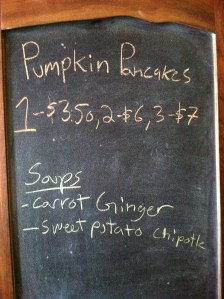 Pumpkin Pancakes
1-$3.50, 2-$6, 3-$7
Soups
-carrot Ginger
-sweet potato chipotle